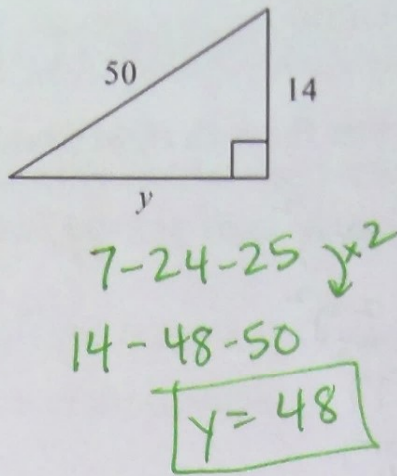 50
14
y
7-24-25 ×2
14-48-50
y = 48